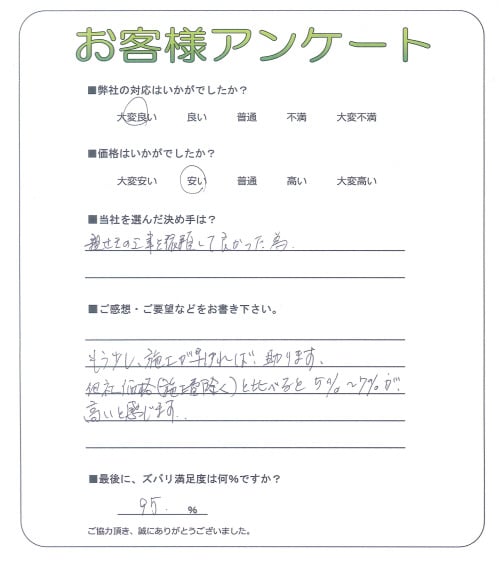 お客様アンケート
■弊社の対応はいかがでしたか？
大変良い 良い 普通 不満 大変不満
■価格はいかがでしたか？
大変安い 安い 普通 高い 大変高い
■当社を選んだ決め手は？
の工事を依頼して良かった為
■ご感想・ご要望などをお書き下さい。
もう少し、施工が早ければ、助ります。
他社価格(施工費除く)と比べると5%〜7%が、
高いと感じます。
■最後に、ズバリ満足度は何％ですか？
95. %
ご協力頂き、誠にありがとうございました。